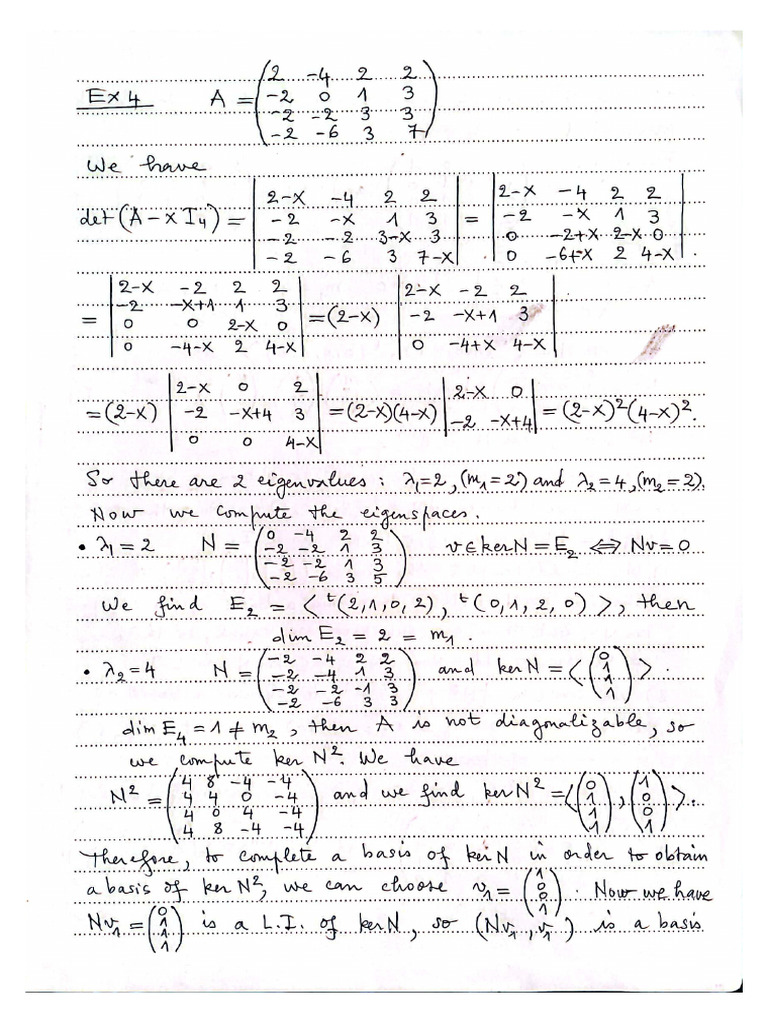 Ex 4 A = (2 -4 2 2
-2 0 1 3
-2 -2 3 3
-2 -6 3 7)
We have
det(A - X I₄) = |2-X -4 2 2
-2 -X 1 3
-2 -2 3-X 3
-2 -6 3 7-X| = |2-X -4 2 2
-2 -X 1 3
0 -2+X 2-X 0
0 -6+X 2 4-X|.
= |2-X -2 2 2
-2 -X+1 1 3
0 0 2-X 0
0 -4-X 2 4-X| = (2-X) |2-X -2 2
-2 -X+1 3
0 -4+X 4-X|
= (2-X) |2-X 0 2
-2 -X+4 3
0 0 4-X| = (2-X)(4-X) |2-X 0
-2 -X+4| = (2-X)²(4-X)².
So there are 2 eigenvalues : λ₁=2, (m₁=2) and λ₂=4, (m₂=2).
Now we compute the eigenspaces.
• λ₁=2 N = (0 -4 2 2
-2 -2 1 3
-2 -2 1 3
-2 -6 3 5) v∈ker N = E₂ ⟺ Nv=0
We find E₂ = < ᵗ(2,1,0,2), ᵗ(0,1,2,0) >, then
dim E₂ = 2 = m₁.
• λ₂=4 N = (-2 -4 2 2
-2 -4 1 3
-2 -2 -1 3
-2 -6 3 3) and ker N = <(0
1
1
1)>.
dim E₄ = 1 ≠ m₂, then A is not diagonalizable, so
we compute ker N². We have
N² = (4 8 -4 -4
4 4 0 -4
4 0 4 -4
4 8 -4 -4) and we find ker N² = <(0
1
1
1), (1
0
0
1)>.
Therefore, to complete a basis of ker N in order to obtain
a basis of ker N², we can choose v₁ = (1
0
0
1). Now we have
Nv₁ = (0
1
1
1) is a L.I. of ker N, so (Nv₁, v₁) is a basis